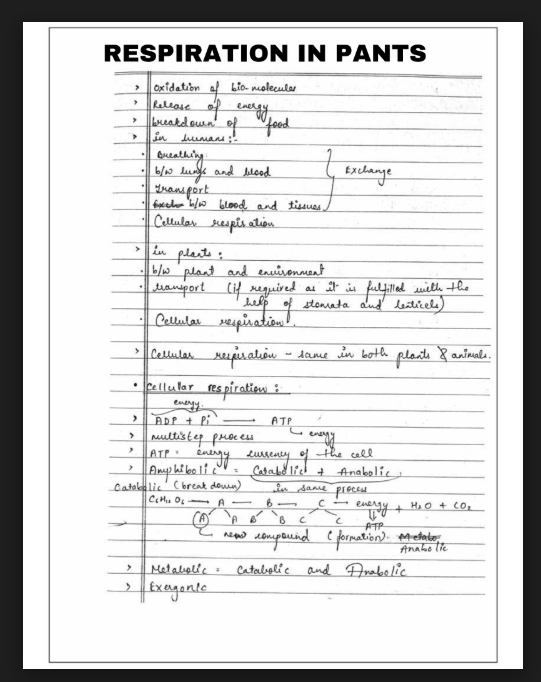 RESPIRATION IN PANTS
> Oxidation of bio-molecules
> Release of energy
> breakdown of food
> in humans:-
· Breathing
· b/w lungs and blood
Exchange
· transport
· b/w blood and tissues
· Cellular respiration
> in plants :
· b/w plant and environment
· transport (if required as it is fulfilled with the
help of stomata and lenticels)
· Cellular respiration.
> Cellular respiration - same in both plants & animals.
• Cellular respiration :
energy
> ADP + Pi → ATP
→ energy
> multistep process
> ATP = energy currency of the cell
> Amphibolic = Catabolic + Anabolic
Catabolic (break down) in same process
C₆H₁₂O₆ → A → B → C → energy + H₂O + CO₂
A A B B C C ATP
→ new compound (formation).
Anabolic
> Metabolic = Catabolic and Anabolic
> Exergonic